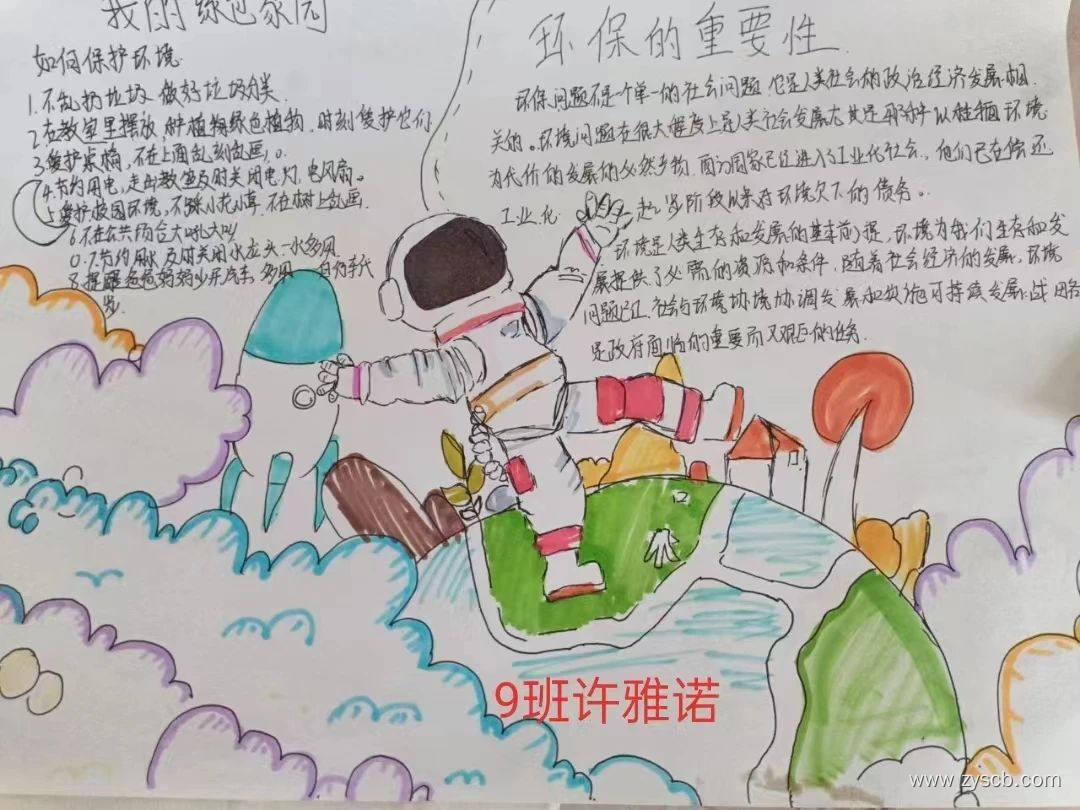 我的绿色家园
如何保护环境
1.不乱扔垃圾 做好垃圾分类
2.在教室里摆放 种植物绿色植物,时刻爱护它们
3.爱护桌椅,不在上面乱刻乱画。
4.节约用电,走出教室及时关闭电灯、电风扇。
5.爱护校园环境,不踩小花小草,不在树上乱画
6.不在公共场合大吼大叫
7.节约用水 及时关闭水龙头 一水多用
8.提醒爸爸妈妈少开汽车
环保的重要性
环保问题不是一个单一的社会问题 它是人类社会的政治经济发展相
关的。环境问题在很大程度上是人类社会发展尤其是那种以牺牲环境
为代价的发展的必然产物,西方国家已经进入了工业化社会,他们已在偿还
工业化 起步阶段以来对环境欠下的债务。
环境是人类生存和发展的基本前提,环境为我们生存和发
展提供了必需的资源和条件,随着社会经济的发展,环境
问题 社会与环境 协调发展和实施可持续发展战
是政府面临的重要而又艰巨的任务
9班许雅诺
www.zyscb.com